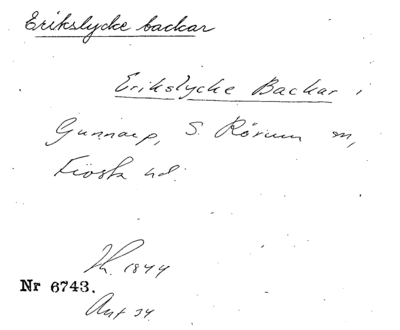 Erikslycke backar
Erikslycke Backar i
Gunnarp, S. Rörum sn,
Frosta hd.
Th. 1844
Nr 6743.
Ant 34.